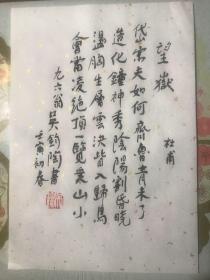 望嶽
杜甫
岱宗夫如何齊魯青未了
造化鐘神秀陰陽割昏曉
盪胸生層雲決眥入歸鳥
會當凌絕頂一覽衆山小
九六翁吳鈞陶書
壬寅初春